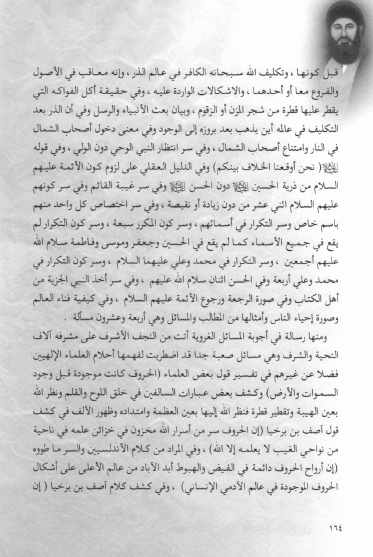 قبل كونها ، وتكليف الله سبحانه الكافر في عالم الذر ، وإنه معاقب في الأصول
والفروع معا أو أحدهما ، والاشكالات الواردة عليه ، وفي حقيقة أكل الفواكه التي
يقطر عليها قطرة من شجر المزن أو الزقوم ، وبيان بعث الأنبياء والرسل وفي أن الذر بعد
التكليف في عالمه أين يذهب بعد بروزه إلى الوجود وفي معنى دخول أصحاب الشمال
في النار وامتناع أصحاب الشمال ، وفي سر انتظار النبي الوحي دون الولي ، وفي قوله
( نحن أوقعنا الخلاف بينكم) وفي الدليل العقلي على لزوم كون الأئمة عليهم
السلام من ذرية الحسين دون الحسن وفي سر غيبة القائم وفي سر كونهم
عليهم السلام اثني عشر من دون زيادة أو نقيصة ، وفي سر اختصاص كل واحد منهم
باسم خاص وسر التكرار في أسمائهم ، وسر كون المكرر سبعة ، وسر كون التكرار لم
يقع في جميع الأسماء كما لم يقع في الحسين وجعفر وموسى وفاطمة سلام الله
عليهم أجمعين ، وسر التكرار في محمد وعلي عليهما السلام ، وسر كون التكرار في
محمد وعلي أربعة وفي الحسن اثنان سلام الله عليهم ، وفي سر أخذ النبي الجزية من
أهل الكتاب وفي صورة الرجعة ورجوع الأئمة عليهم السلام ، وفي كيفية فناء العالم
وصورة إحياء الناس وأمثالها من المطالب والمسائل وهي أربعة وعشرون مسألة .
ومنها رسالة في أجوبة المسائل الغروية أتت من النجف الأشرف على مشرفه آلاف
التحية والشرف وهي مسائل صعبة جدا قد اضطربت لفهمها أحلام العلماء الإلهيين
فضلا عن غيرهم في تفسير قول بعض العلماء (الحروف كانت موجودة قبل وجود
السموات والأرض) وكشف بعض عبارات السالفين في خلق اللوح والقلم ونظر الله
بعين الهيبة وتقطير قطرة فنظر الله إليها بعين العظمة وامتداده وظهور الألف في كشف
قول آصف بن برخيا (إن الحروف سر من أسرار الله مخزون في خزائن علمه في ناحية
من نواحي الغيب لا يعلمه إلا الله) ، وفي المراد من كلام الأندلسيين والسر ما طووه
(إن أرواح الحروف دائمة في الفيض والهبوط أبد الآباد من عالم الأعلى على أشكال
الحروف الموجودة في عالم الآدمي الإنساني) ، وفي كشف كلام آصف بن برخيا ( إن
١٦٤